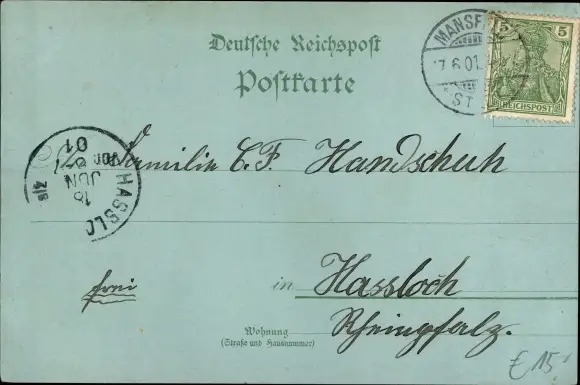 Deutsche Reichspost
Postkarte
MANSF
17.6.01.
ST
5 5
REICHSPOST
HASSLO
18
JUN
01
Familie C. F. Handschuh
frei
in Hassloch
Rheinpfalz.
Wohnung
(Straße und Hausnummer)
€ 15.-